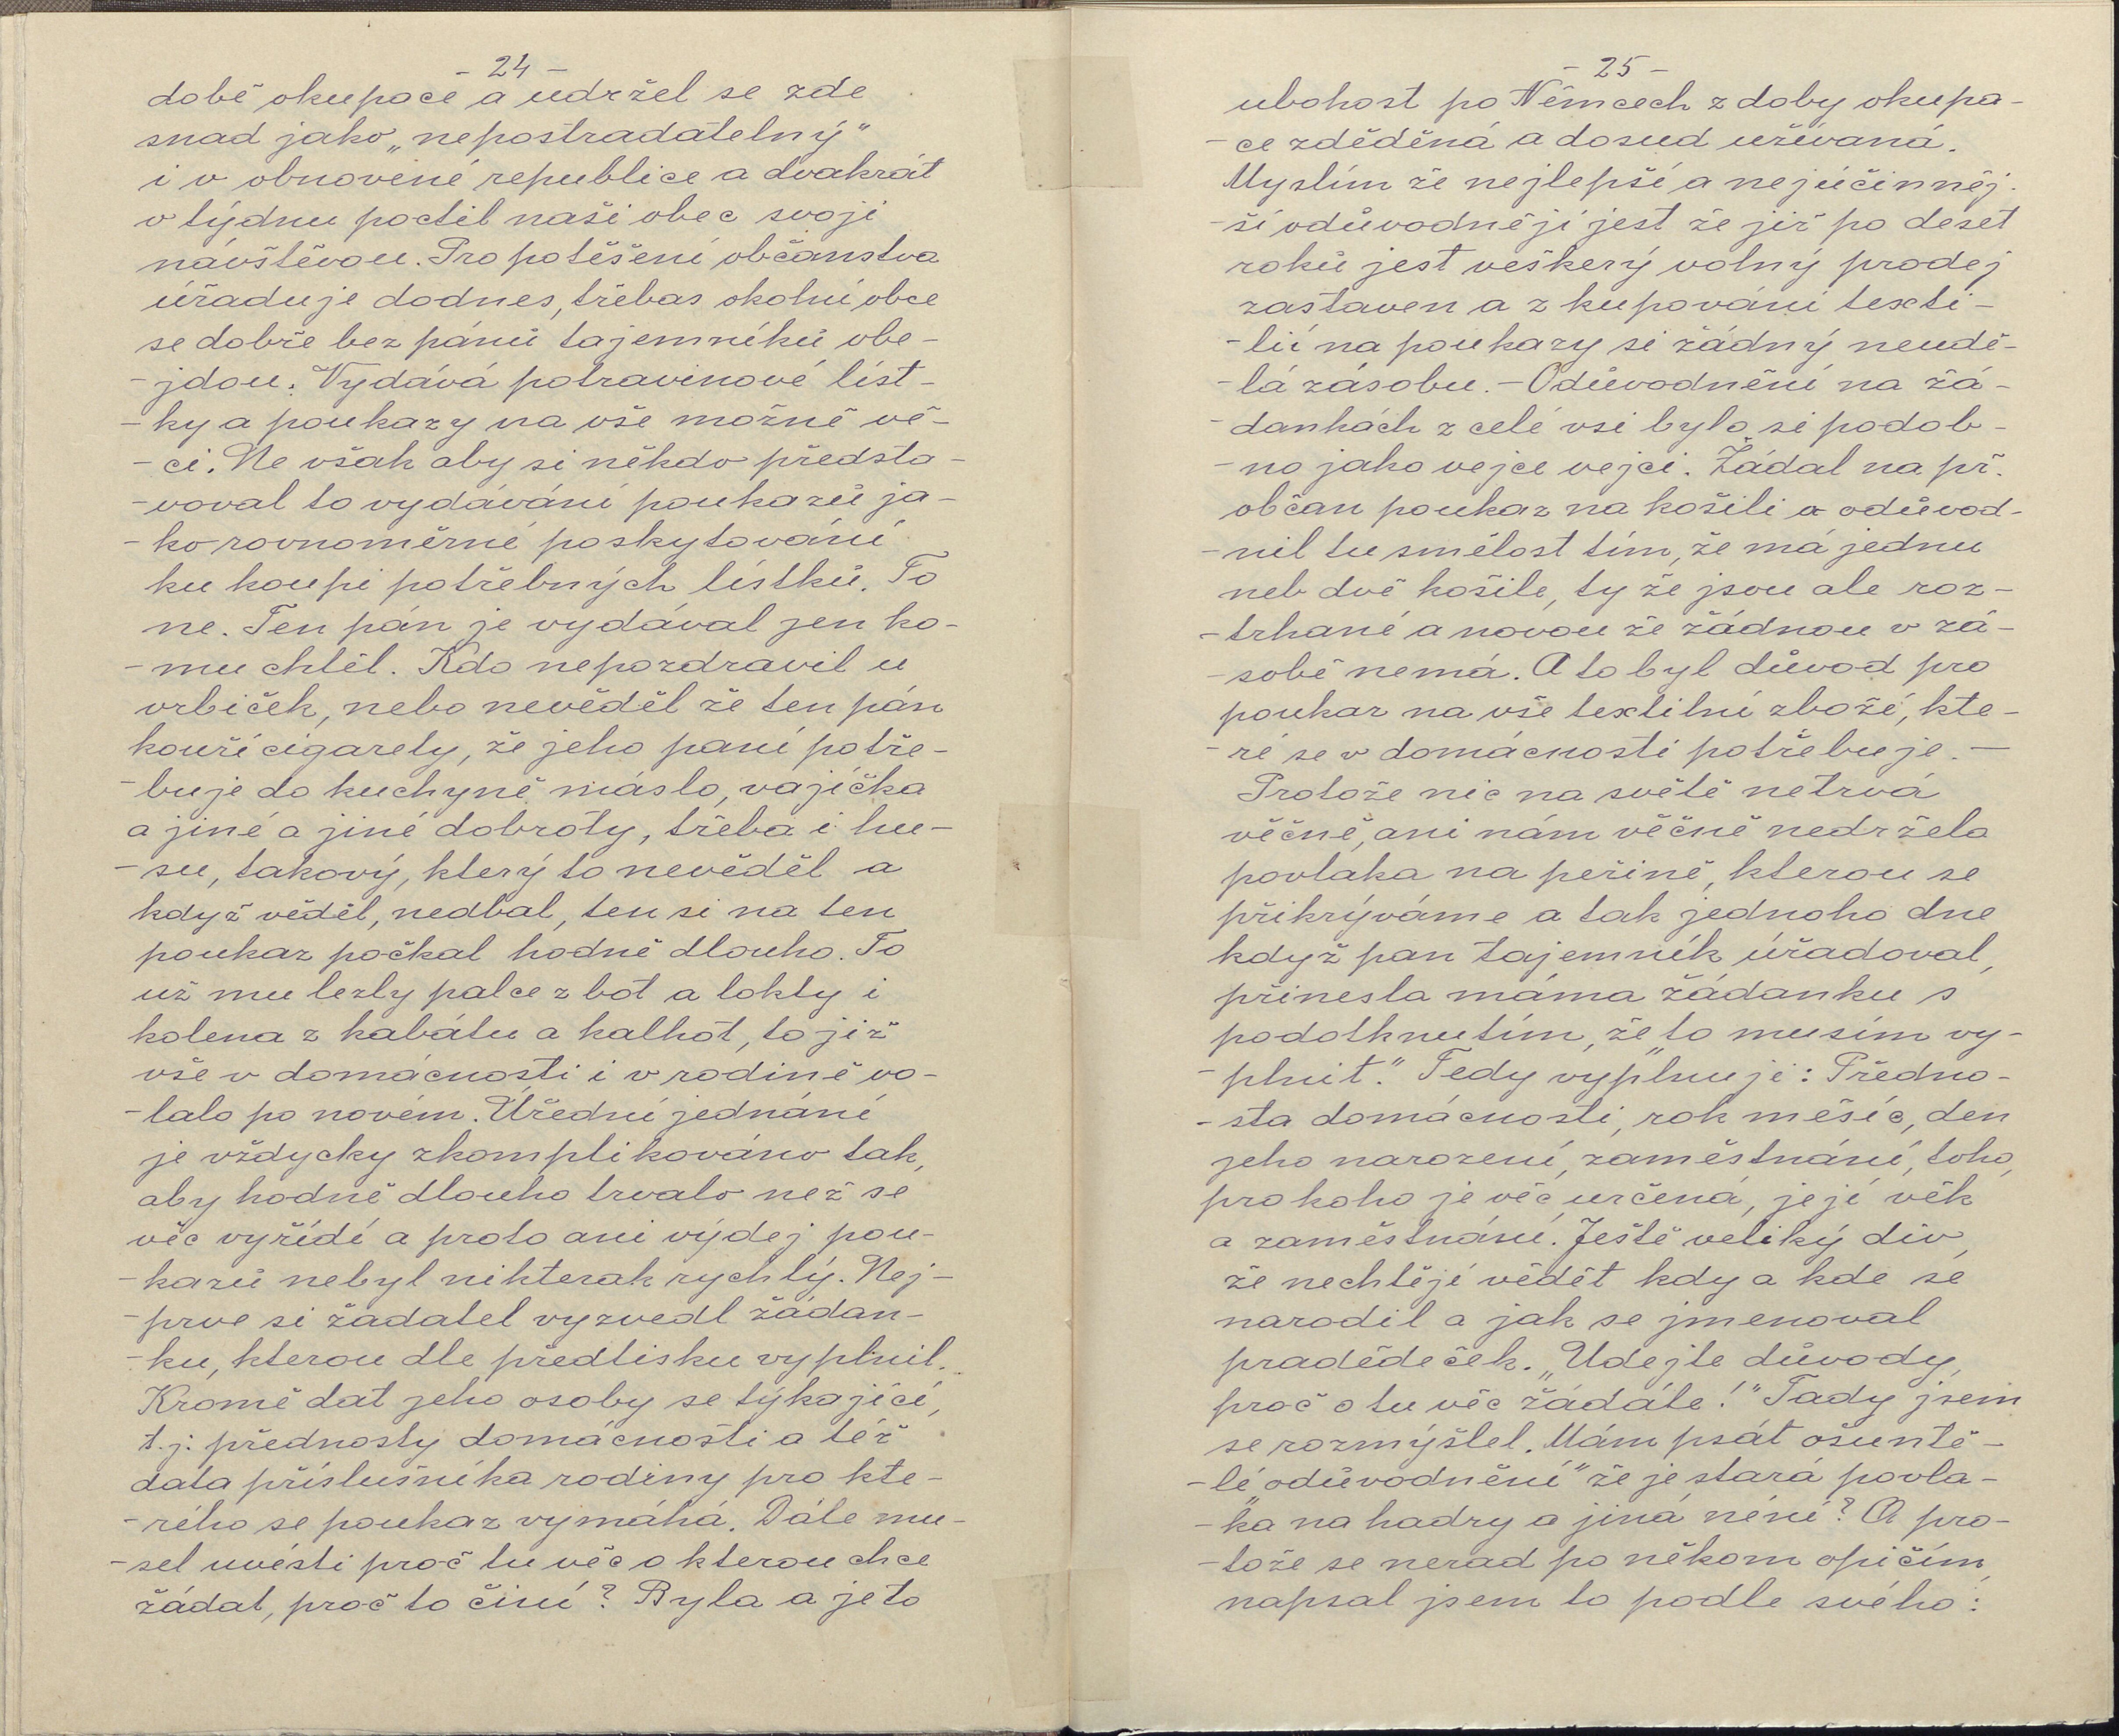 - 24 -
době okupace a udržel se zde
snad jako „nepostradatelný"
i v obnovené republice a dvakrát
v týdnu poctil naši obec svoji
návštěvou. Pro potěšení občanstva
úřaduje dodnes, třebas okolní obce
se dobře bez pánů tajemníků obe-
-jdou. Vydává potravinové líst-
-ky a poukazy na vše možné vě-
-ci. Ne však aby si někdo předsta-
-voval to vydávání poukazů ja-
-ko rovnoměrné poskytování
ku koupi potřebných lístků. To
ne. Ten pán je vydával jen ko-
-mu chtěl. Kdo nepozdravil u
vrbiček, nebo nevěděl že ten pán
kouří cigarety, že jeho paní potře-
-buje do kuchyně máslo, vajíčka
a jiné a jiné dobroty, třeba i hu-
-su, takový, který to nevěděl a
když věděl, nedbal, ten si na ten
poukaz počkal hodně dlouho. To
už mu lezly palce z bot a lokty i
kolena z kabátu a kalhot, to již
vše v domácnosti i v rodině vo-
-lalo po novém. Úřední jednání
je vždycky zkomplikováno tak,
aby hodně dlouho trvalo než se
věc vyřídí a proto ani výdej pou-
-kazů nebyl nikterak rychlý. Nej-
-prve si žadatel vyzvedl žádan-
-ku, kterou dle předtisku vyplnil.
Kromě dat jeho osoby se týkající,
t.j. přednosty domácnosti a též
data příslušníka rodiny pro kte-
-rého se poukaz vymáhá. Dále mu-
-sel uvésti proč tu věc o kterou chce
žádat, proč to činí? Byla a je to
- 25 -
ubohost po Němcech z doby okupa-
-ce zděděná a dosud užívaná.
Myslím že nejlepší a nejúčinněj-
-ší odůvodněji jest že již po deset
roků jest veškerý volný prodej
zastaven a z kupování texti-
-lií na poukazy si žádný neudě-
-lá zásobu. - Odůvodnění na žá-
-dankách z celé vsi bylo si podob-
-no jako vejce vejci. Žádal na př.
občan poukaz na košili a odůvod-
-nil tu smělost tím, že má jednu
neb dvě košile, ty že jsou ale roz-
-trhané a novou že žádnou v zá-
-sobě nemá. A to byl důvod pro
poukaz na vše textilní zboží, kte-
-ré se v domácnosti potřebuje. -
Protože nic na světě netrvá
věčně, ani nám věčně nedržela
povlaka na peřině, kterou se
přikrýváme a tak jednoho dne
když pan tajemník úřadoval,
přinesla máma žádanku s
podotknutím, že „to musím vy-
-plnit." Tedy vyplnuji: Předno-
-sta domácnosti, rok měsíc, den
jeho narození, zaměstnání, toho,
pro koho je věc určená, její věk
a zaměstnání. Ještě veliký div,
že nechtějí vědět kdy a kde se
narodil a jak se jmenoval
pradědeček. „Udejte důvody,
proč o tu věc žádáte!" Tady jsem
se rozmýšlel. Mám psát ošuntě-
-lé „odůvodnění" že je stará povla-
-ka na hadry a jiná není? A pro-
-tože se nerad po někom opičím,
napsal jsem to podle svého: